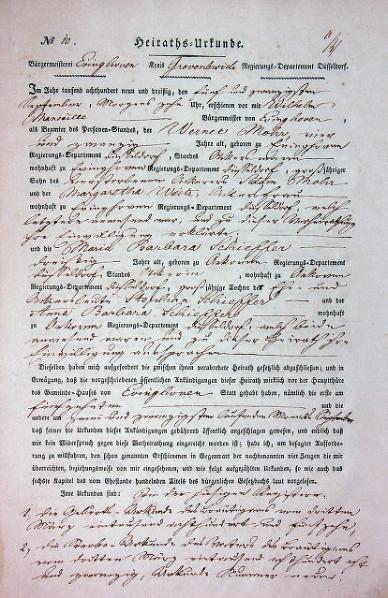 No 10. Heiraths-Urkunde.
Bürgermeisterei Evinghoven Kreis Grevenbroich Regierungs-Departement Düsseldorf.
Im Jahr tausend achthundert neun und dreißig, den fünf und zwanzigsten
September, Morgens zehn Uhr, erschienen vor mir Wilhelm
Bürgermeister von Evinghoven,
als Beamten des Personen-Standes, der Werner Mohr, vier
und zwanzig Jahre alt, geboren zu
Regierungs-Departement Düsseldorf, Standes
wohnhaft zu Regierungs-Departement Düsseldorf, großjähriger
Sohn des Mohr
und der Margaretha
wohnhaft zu Regierungs-Departement Düsseldorf, welche
letztere anwesend war, und zu dieser Verheirathung
ihre Einwilligung erklärte,
und die Maria Barbara Schieffer
dreißig Jahre alt, geboren zu Oekoven Regierungs-Departement
Düsseldorf, Standes wohnhaft zu Oekoven
Regierungs-Departement Düsseldorf, großjährige Tochter der Ehe- und
Ackersleute Stephan Schieffer und der
Anna Barbara Schieffer wohnhaft
zu Oekoven Regierungs-Departement Düsseldorf, welche beide
anwesend waren und zu dieser Heirath ihre
Einwilligung aussprachen
Dieselben haben mich aufgefordert die zwischen ihnen verabredete Heirath gesetzlich abzuschließen; und in
Erwägung, daß die vorgeschriebenen öffentlichen Ankündigungen dieser Heirath wirklich vor der Hauptthüre
des Gemeinde-Hauses von Evinghoven Statt gehabt haben, nämlich die erste am
fünfzehnten und die
andere am zwei und zwanzigsten laufenden Monats September
daß ferner die Urkunden dieser Ankündigungen gebührend öffentlich angeschlagen gewesen, und endlich daß
mir kein Widerspruch gegen diese Verheirathung eingereicht worden ist; habe ich, um besagter Aufforderung
zu willfahren, den schon genannten Erschienenen in Gegenwart der nachbenannten vier Zeugen die mir
überreichten, beziehungsweise von mir eingesehenen, und wie folgt aufgezählten Urkunden, so wie auch das
sechste Kapitel des vom Ehestande handelnden Titels des bürgerlichen Gesetzbuchs laut vorgelesen.
Jene Urkunden sind: In den hiesigen Registern:
1, Die Geburts-Urkunde des Bräutigams vom dritten
März eintausend achthundert und fünfzehn,
2, die Sterbe-Urkunde des Vaters des Bräutigams
vom dritten März eintausend achthundert acht
und zwanzig, Urkunde Nummer neun.